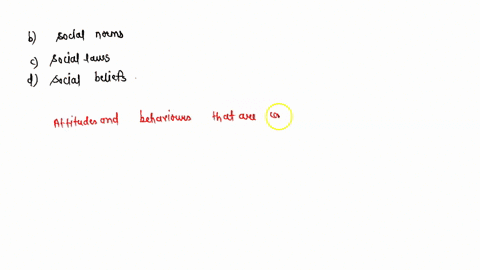 b) social norms
c) social laws
d) social beliefs
Attitudes and behaviours that are co